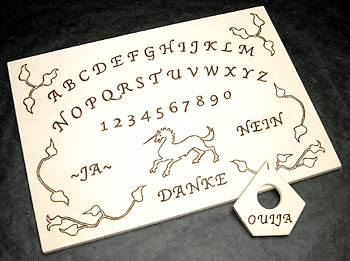 ABCDEFGHIJKLM
NOPQRSTUVWXYZ
1234567890
~JA~
NEIN
DANKE
OUIJA